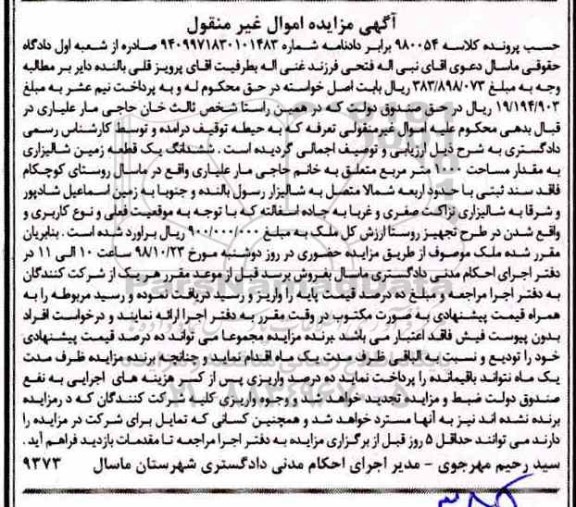 آگهی مزایده اموال غیر منقول
حسب پرونده کلاسه ۹۸۰۰۵۴ برابر دادنامه شماره ۹۴۰۹۹۷۱۸۳۰۱۰۱۴۸۳ صادره از شعبه اول دادگاه
حقوقی ماسال دعوی آقای نبی اله فتحی فرزند غنی اله بطرفیت آقای پرویز قلی بالنده دایر بر مطالبه
وجه به مبلغ ۳۸۳/۸۹۸/۰۷۳ ریال بابت اصل خواسته در حق محکوم له و به پرداخت نیم عشر به مبلغ
۱۹/۱۹۴/۹۰۳ ریال در حق صندوق دولت که در همین راستا شخص ثالث خان حاجی مار علیاری در
قبال بدهی محکوم علیه اموال غیرمنقولی تعرفه که به حیطه توقیف درآمده و توسط کارشناس رسمی
دادگستری به شرح ذیل ارزیابی و توصیف اجمالی گردیده است . ششدانگ یک قطعه زمین شالیزاری
به مقدار مساحت ۱۰۰۰ متر مربع متعلق به خانم حاجی مار علیاری واقع در ماسال روستای کوچکام
فاقد سند ثبتی با حدود اربعه شمالا متصل به شالیزار رسول بالنده و جنوبا به زمین اسماعیل شادپور
و شرقا به شالیزاری نزاکت صفری و غربا به جاده آسفالته که با توجه به موقعیت فعلی و نوع کاربری و
واقع شدن در طرح تجهیز روستا ارزش کل ملک به مبلغ ۹۰۰/۰۰۰/۰۰۰ ریال برآورد شده است . بنابریان
مقرر شده ملک موصوف از طریق مزایده حضوری در روز دوشنبه مورخ ۹۸/۱۰/۲۳ ساعت ۱۰ الی ۱۱ در
دفتر اجرای احکام مدنی دادگستری ماسال بفروش برسد قبل از موعد مقرر هر یک از شرکت کنندگان
به دفتر اجرا مراجعه و مبلغ ده درصد قیمت پایه را واریز و رسید دریافت نموده و رسید مربوطه را به
همراه قیمت پیشنهادی به صورت مکتوب در وقت مقرر به دفتر اجرا ارائه نمایند و درخواست افراد
بدون پیوست فیش فاقد اعتبار می باشد .برنده مزایده مجموعا می تواند ده درصد قیمت پیشنهادی
خود را تودیع و نسبت به الباقی ظرف مدت یک ماه اقدام نماید و چنانچه برنده مزایده ظرف مدت
یک ماه نتواند باقیمانده را پرداخت نماید ده درصد واریزی پس از کسر هزینه های اجرایی به نفع
صندوق دولت ضبط و مزایده تجدید خواهد شد و وجوه واریزی کلیه شرکت کنندگان که در مزایده
برنده نشده اند نیز به آنها مسترد خواهد شد و همچنین کسانی که تمایل برای شرکت در مزایده را
دارند می توانند حداقل ۵ روز قبل از برگزاری مزایده به دفتر اجرا مراجعه تا مقدمات بازدید فراهم آید .
سید رحیم مهرجوی - مدیر اجرای احکام مدنی دادگستری شهرستان ماسال ۹۳۷۳